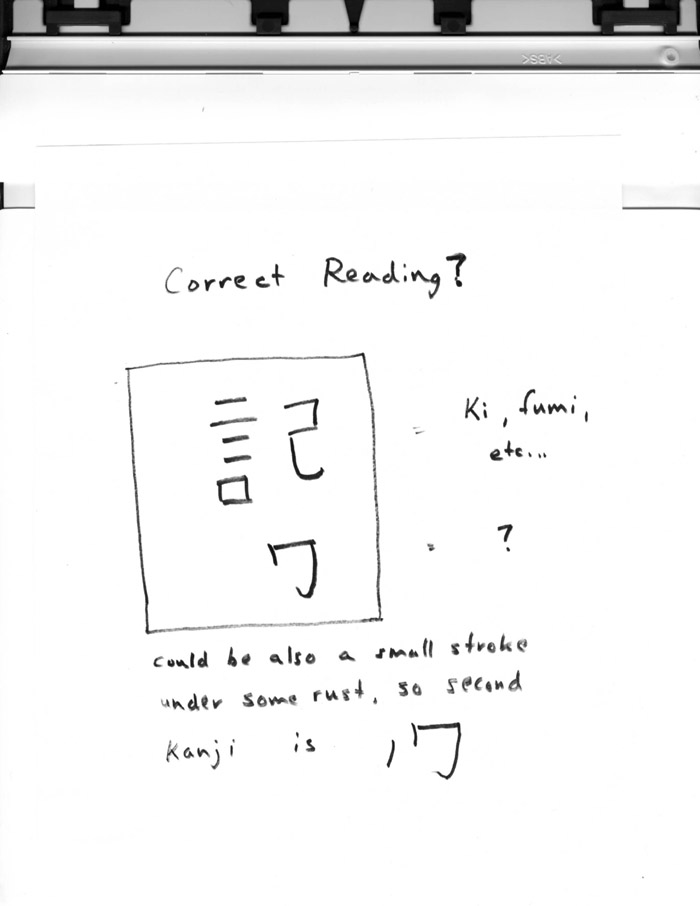 Correct Reading?
記 = Ki, fumi,
etc...
ワ = ?
could be also a small stroke
under some rust, so second
Kanji is ,ワ